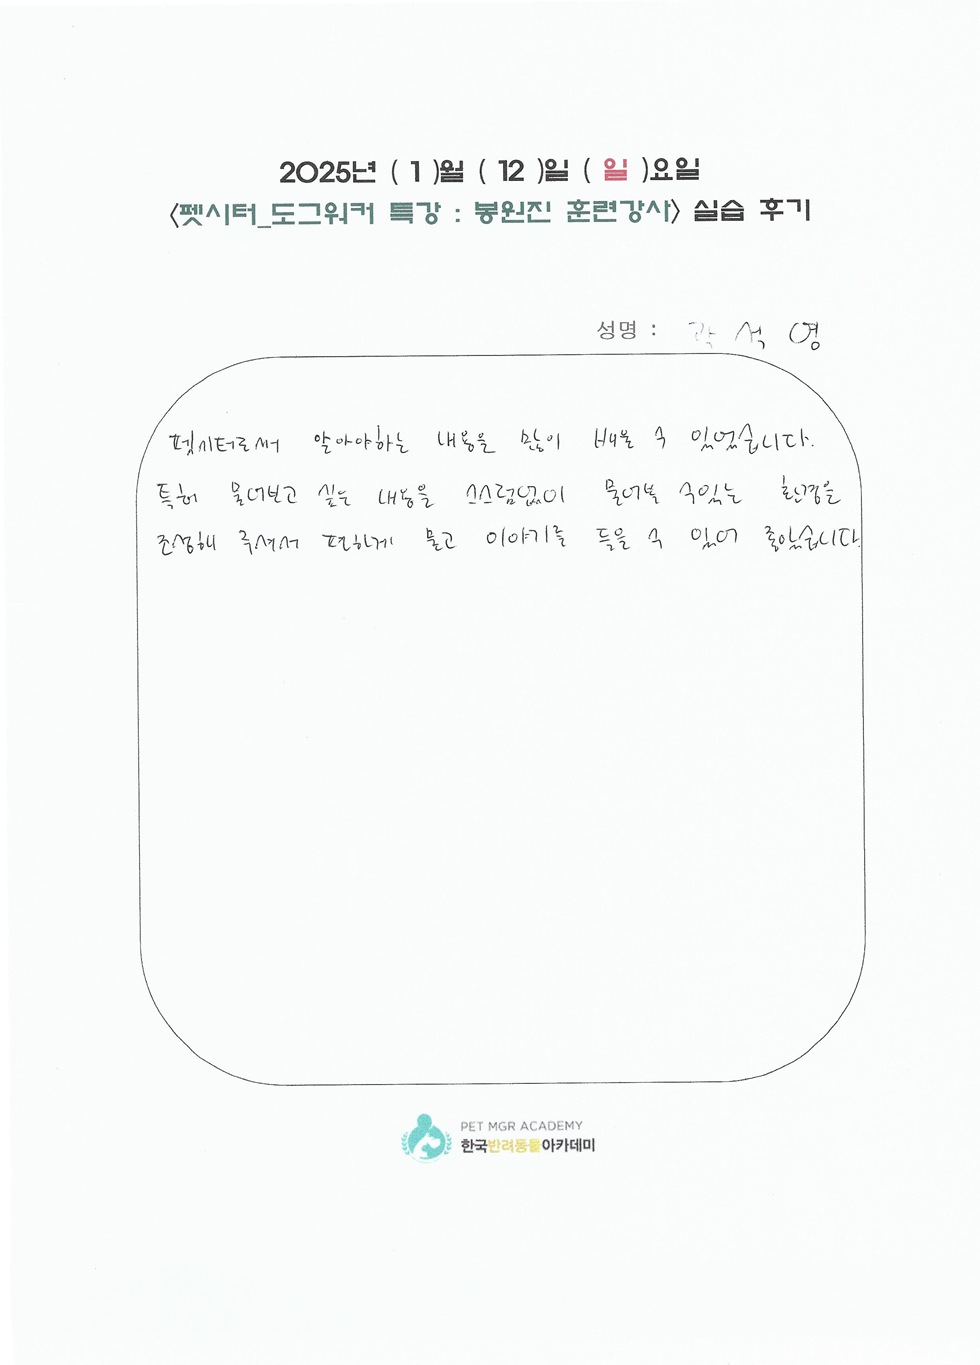 2025년 ( 1 )월 ( 12 )일 ( 일 )요일
<펫시터_도그워커 특강 : 봉원진 훈련강사> 실습 후기
성명 : 곽석영
펫시터로써 알아야하는 내용을 많이 배울 수 있었습니다.
특히 물어보고 싶은 내용을 스스럼없이 물어볼 수있는 환경을
조성해 주셔서 편하게 묻고 이야기를 들을 수 있어 좋았습니다.
PET MGR ACADEMY
한국반려동물아카데미